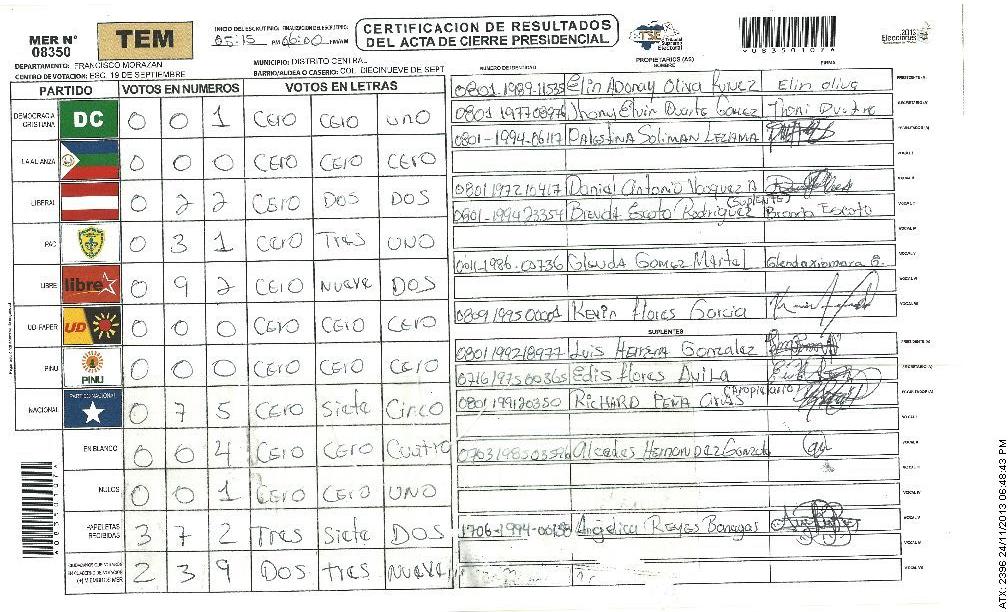 MER N° 08350
TEM
INICIO DEL ESCRUTINIO: FINALIZACION DEL ESCRUTINIO:
05:15 PM 06:00 PM/AM
CERTIFICACION DE RESULTADOS
DEL ACTA DE CIERRE PRESIDENCIAL
TSE Tribunal Supremo Electoral
08350107A
2013
DEPARTAMENTO: FRANCISCO MORAZAN
MUNICIPIO: DISTRITO CENTRAL
CENTRO DE VOTACION: ESC. 19 DE SEPTIEMBRE
BARRIO/ALDEA O CASERIO: COL. DIECINUEVE DE SEPT
PARTIDO VOTOS EN NUMEROS VOTOS EN LETRAS
DEMOCRACIA CRISTIANA DC 0 0 1 CERO CERO UNO
LA ALIANZA 0 0 0 CERO CERO CERO
LIBERAL 0 2 2 CERO DOS DOS
PAC 0 3 1 CERO Tres UNO
LIBRE libre 0 9 2 CERO Nueve DOS
UD-FAPER UD 0 0 0 CERO CERO CERO
PINU PINU 0 0 0 CERO CERO CERO
NACIONAL PARTIDO NACIONAL 0 7 5 CERO Siete Cinco
EN BLANCO 0 0 4 CERO CERO Cuatro
NULOS 0 0 1 CERO CERO UNO
PAPELETAS RECIBIDAS 3 7 2 Tres Siete Dos
CIUDADANOS QUE VOTARON EN CUADERNO DE VOTACION (+) MIEMBROS MER 2 3 9 Dos tres Nueve
PROPIETARIOS (AS)
NUMERO DE IDENTIDAD NOMBRE FIRMA
0801-1989-11535 Elin Adonay Oliva Elin oliva PRESIDENTE (A)
Jhony Elvin Duarte Gomez SECRETARIO (A)
0801-1994-06117 PALESTINA SOLIMAN LEZAMA ESCRUTADOR (A)
VOCAL I
0801197210417 Daniel Antonio Vasquez VOCAL II
(SUPLENTE)
0801-199423354 Brenda Escoto Rodriguez Brenda Escoto VOCAL III
VOCAL IV
0011-1986-00736 Glenda Gomez Martel Glendaxiomara G. VOCAL V
VOCAL VI
0809199500001 Kevin Flores Garcia VOCAL VII
SUPLENTES
0801199218977 Luis Herrera Gonzalez PRESIDENTE (A)
0716197500365 Edis Flores Avila SECRETARIO (A)
(Propietario)
0801199120350 RICHARD PEÑA ESCRUTADOR (A)
VOCAL I
Alcedes Hernandez VOCAL II
VOCAL III
VOCAL IV
1706-1994-00158 Angelica REYES Banegas VOCAL V
VOCAL VI
VOCAL VII
ATX: 2396 24/11/2013 06:48:43 PM